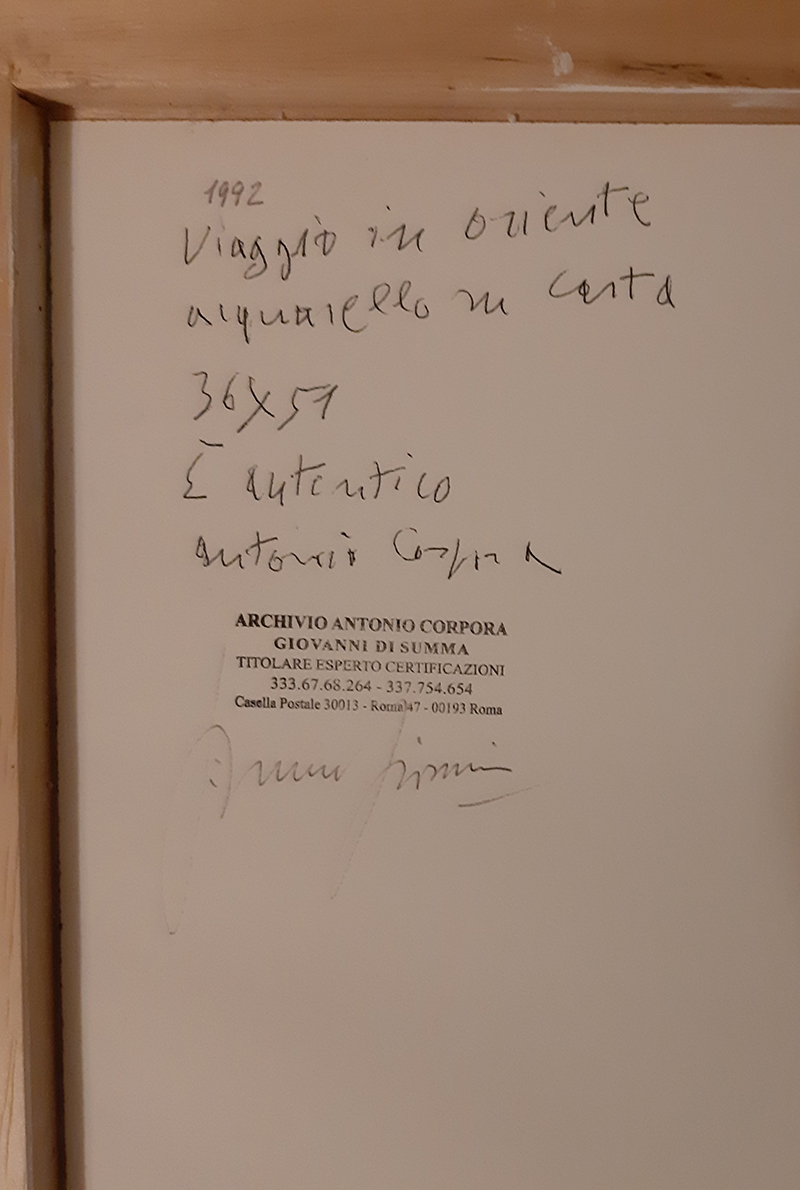 1992
Viaggio in oriente
acquarello su carta
36x51
È autentico
Antonio Corpora
ARCHIVIO ANTONIO CORPORA
GIOVANNI DI SUMMA
TITOLARE ESPERTO CERTIFICAZIONI
333.67.68.264 - 337.754.654
Casella Postale 30013 - Roma 47 - 00193 Roma